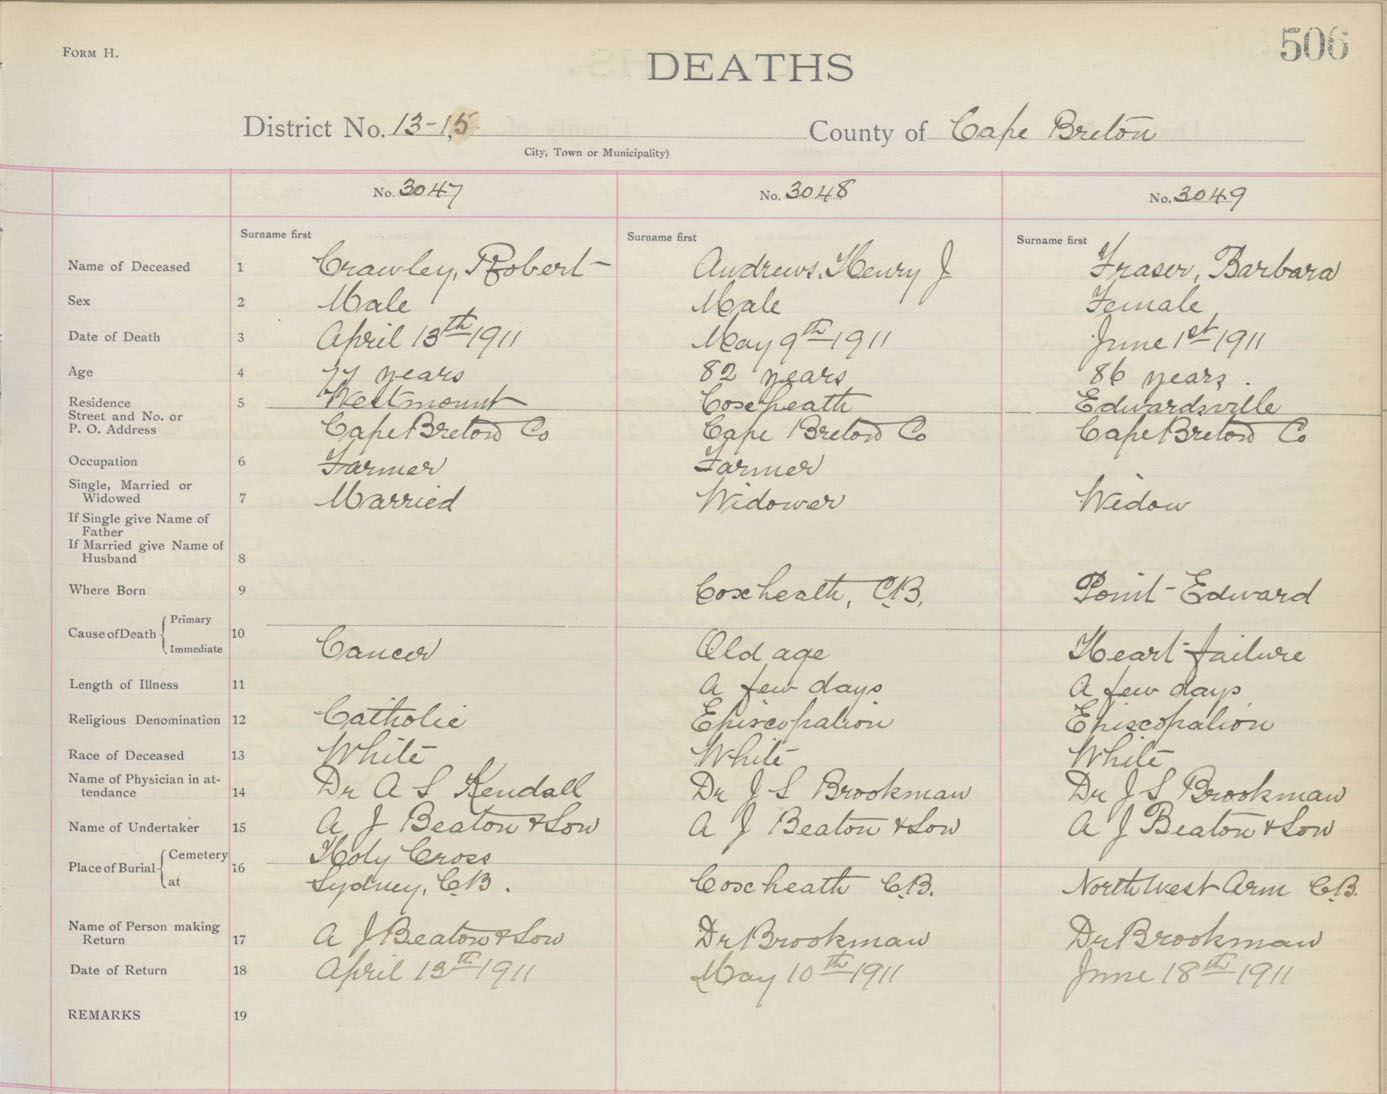 506
FORM H.
DEATHS
District No. 13-15 County of Cape Breton
City, Town or Municipality)
No. 3047 No. 3048 No. 3049
Surname first Surname first Surname first
Name of Deceased 1 Crawley, Robert Andrews, Henry J Fraser, Barbara
Sex 2 Male Male Female
Date of Death 3 April 13th 1911 May 9th 1911 June 1st 1911
Age 4 77 years 82 years 86 years.
Residence 5 Westmount Coxheath Edwardsville
Street and No. or
P. O. Address Cape Breton Co Cape Breton Co Cape Breton Co
Occupation 6 Farmer Farmer
Single, Married or
Widowed 7 Married Widower Widow
If Single give Name of
Father
If Married give Name of
Husband 8
Where Born 9 Coxheath, C.B. Point Edward
Cause of Death Primary
10
Immediate Cancer Old age Heart failure
Length of Illness 11 A few days A few days
Religious Denomination 12 Catholic Episcopalion Episcopalion
Race of Deceased 13 White White White
Name of Physician in at-
tendance 14 Dr A S Kendall Dr J S Brookman Dr J S Brookman
Name of Undertaker 15 A J Beaton & Son A J Beaton & Son A J Beaton & Son
Place of Burial Cemetery 16 Holy Cross
at Sydney, C.B. Coxheath C.B. North West Arm C.B.
Name of Person making
Return 17 A J Beaton & Son Dr Brookman Dr Brookman
Date of Return 18 April 13th 1911 May 10th 1911 June 18th 1911
REMARKS 19